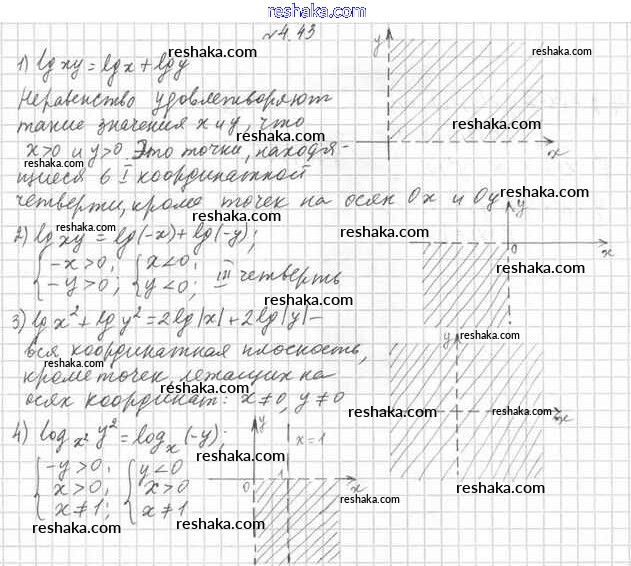 reshaka.com
№4.43
1) lg xy = lg x + lg y
Неравенство удовлетворяют
такие значения x и y, что
x>0 и y>0. Это точки, находя-
щиеся в I координатной
четверти, кроме точек на осях Ox и Oy
2) lg xy = lg(-x) + lg(-y);
{ -x>0; { x<0;
{ -y>0; { y<0; III четверть
3) lg x² + lg y² = 2lg|x| + 2lg|y| –
вся координатная плоскость,
кроме точек лежащих на
осях координат: x≠0, y≠0
4) log_{x²} y² = log_x (-y);
{ -y>0; { y<0
{ x>0; { x>0
{ x≠1; { x≠1
y
x
y
0
x
y
x
y
x=1
0
1
x
reshaka.com
reshaka.com
reshaka.com
reshaka.com
reshaka.com
reshaka.com
reshaka.com
reshaka.com
reshaka.com
reshaka.com
reshaka.com
reshaka.com
reshaka.com
reshaka.com
reshaka.com
reshaka.com
reshaka.com
reshaka.com
reshaka.com
reshaka.com